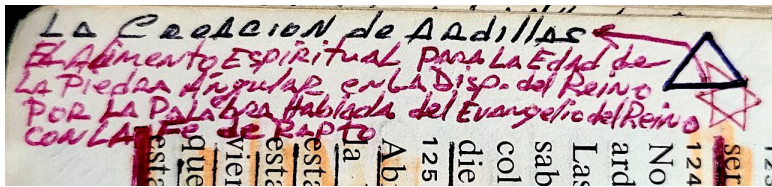 La Creacion de Ardillas
El Alimento Espiritual para la Edad de
la Piedra Angular en la Disp. del Reino
por la Palabra Hablada del Evangelio del Reino
con la Fe de Rapto
esta
que
vien
esta
esta
la
Ab
125
die
col
sab
Las
ard
No
124
ser